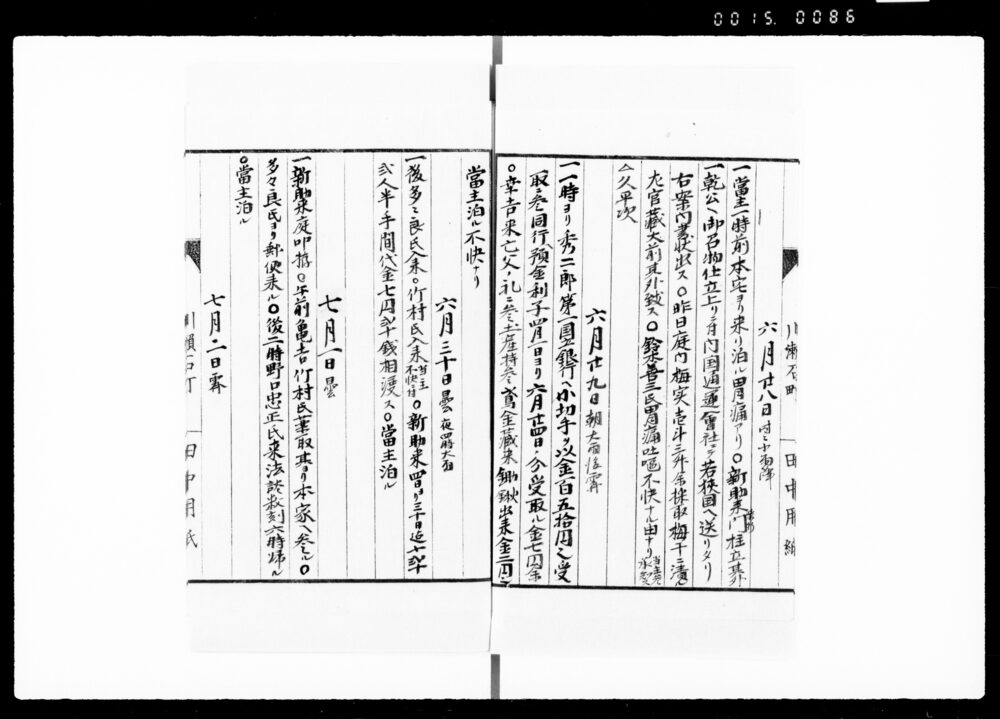 0015. 0086
六月廿八日 時々小雨降
一當主一時前本宅ヨリ来リ泊ル胃痛アリ〇新助来門柱立其外
一乾公ヘ御召物仕立上リニ付内国通運會社ニテ若狭国ヘ送リタリ
右案内書状出ス〇昨日庭内梅実壱斗三升余採取梅干ニ漬ル
〇鈴木善三氏胃痛吐嘔不快ナル由ナリ
久平次
六月廿九日 朝大雨後霽
一一時ヨリ秀二郎第一国立銀行ヘ小切手ヲ以金百五拾円之受
取ニ参同行預金利子四月一日ヨリ六月廿四日ノ分受取ル金七円余
〇幸吉来亡父ノ礼ニ参土産持参鳶金蔵来鋤鍬出来金三円
當主泊ル不快ナリ
六月三十日曇 夜四時大雨
一後多々良氏入来〇竹村氏入来當主不快ニ付〇新助来四日ヨリ三十日迄十弐
弐人半手間代金七円弐十銭相渡ス〇當主泊ル
七月一日曇
一新助来庭叩拵〇午前亀吉竹村氏薬取其ヨリ本家ヘ参ル〇
多々良氏ヨリ郵便来ル〇後二時野口忠正氏来法談数刻六時帰ル
〇當主泊ル
七月二日霽
川瀬石町
田中用紙